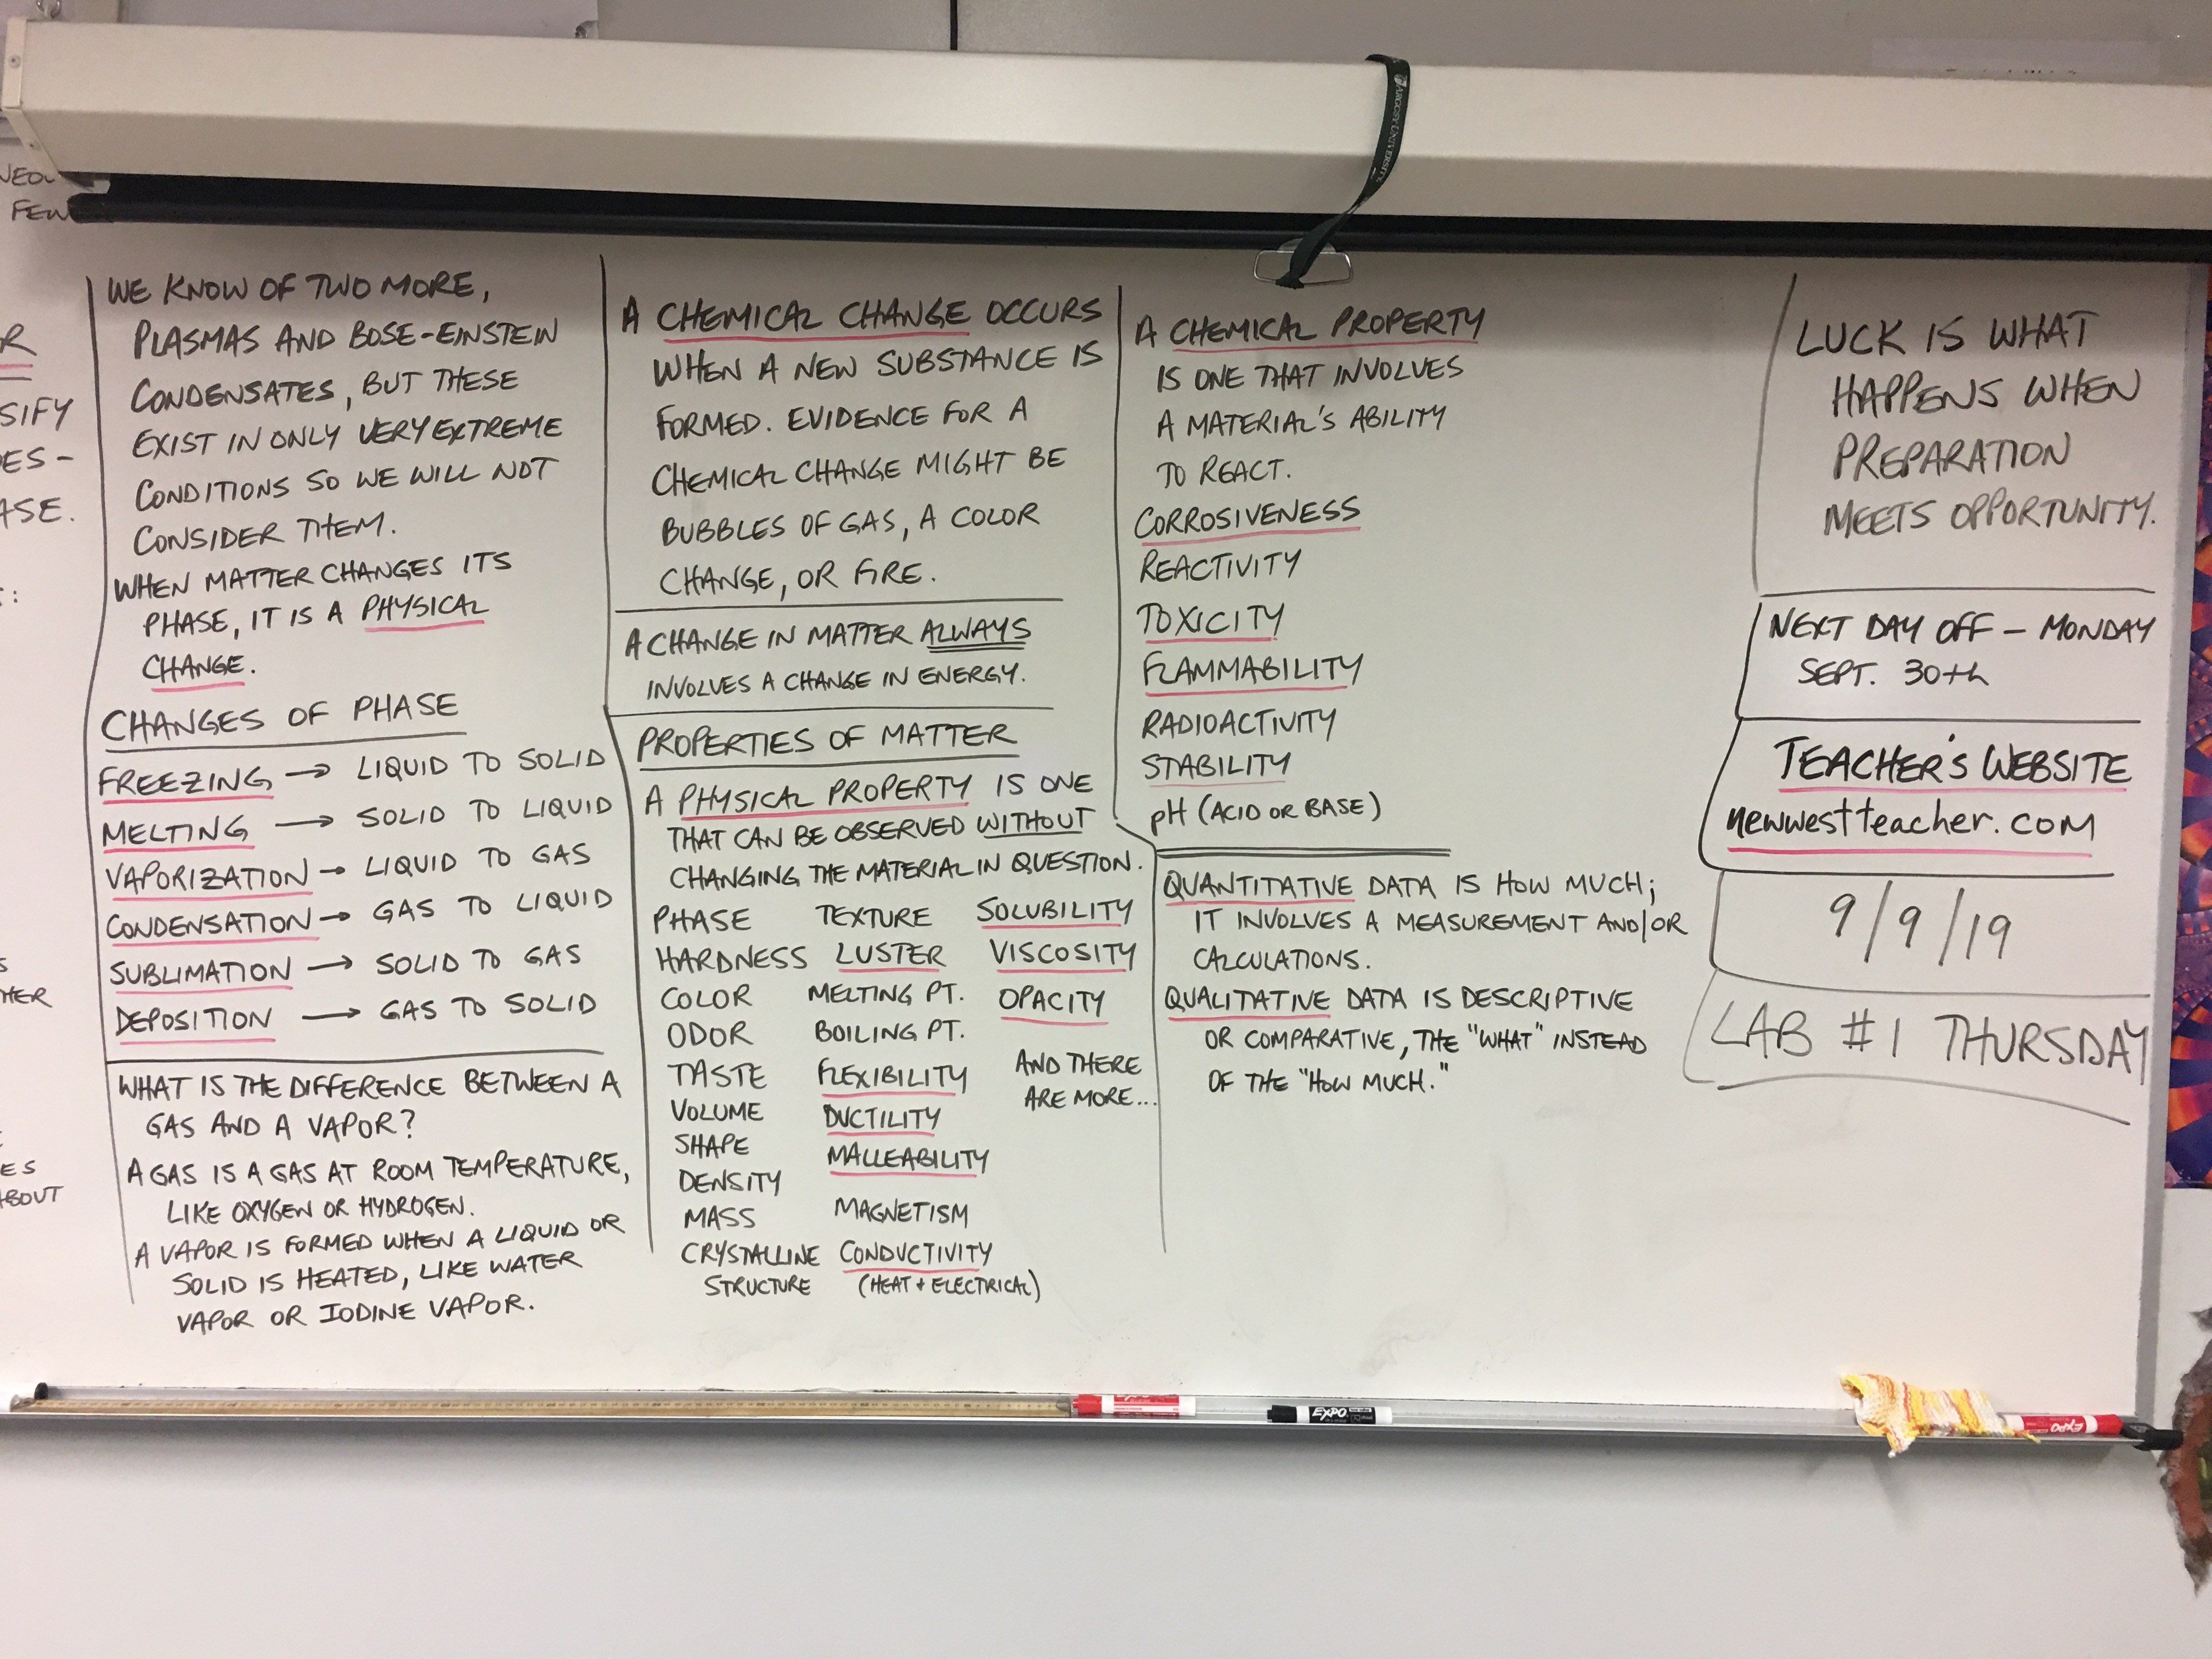 ARGOSY UNIVERSITY
FEW
R
SIFY
ES-
ASE.
HER
ES
ABOUT
WE KNOW OF TWO MORE,
PLASMAS AND BOSE-EINSTEIN
CONDENSATES, BUT THESE
EXIST IN ONLY VERY EXTREME
CONDITIONS SO WE WILL NOT
CONSIDER THEM.
WHEN MATTER CHANGES ITS
PHASE, IT IS A PHYSICAL
CHANGE.
CHANGES OF PHASE
FREEZING → LIQUID TO SOLID
MELTING → SOLID TO LIQUID
VAPORIZATION → LIQUID TO GAS
CONDENSATION → GAS TO LIQUID
SUBLIMATION → SOLID TO GAS
DEPOSITION → GAS TO SOLID
WHAT IS THE DIFFERENCE BETWEEN A
GAS AND A VAPOR?
A GAS IS A GAS AT ROOM TEMPERATURE,
LIKE OXYGEN OR HYDROGEN.
A VAPOR IS FORMED WHEN A LIQUID OR
SOLID IS HEATED, LIKE WATER
VAPOR OR IODINE VAPOR.
A CHEMICAL CHANGE OCCURS
WHEN A NEW SUBSTANCE IS
FORMED. EVIDENCE FOR A
CHEMICAL CHANGE MIGHT BE
BUBBLES OF GAS, A COLOR
CHANGE, OR FIRE.
A CHANGE IN MATTER ALWAYS
INVOLVES A CHANGE IN ENERGY.
PROPERTIES OF MATTER
A PHYSICAL PROPERTY IS ONE
THAT CAN BE OBSERVED WITHOUT
CHANGING THE MATERIAL IN QUESTION.
PHASE TEXTURE SOLUBILITY
HARDNESS LUSTER VISCOSITY
COLOR MELTING PT. OPACITY
ODOR BOILING PT.
TASTE FLEXIBILITY AND THERE
VOLUME DUCTILITY ARE MORE...
SHAPE MALLEABILITY
DENSITY
MASS MAGNETISM
CRYSTALLINE CONDUCTIVITY
STRUCTURE (HEAT + ELECTRICAL)
A CHEMICAL PROPERTY
IS ONE THAT INVOLVES
A MATERIAL'S ABILITY
TO REACT.
CORROSIVENESS
REACTIVITY
TOXICITY
FLAMMABILITY
RADIOACTIVITY
STABILITY
pH (ACID OR BASE)
QUANTITATIVE DATA IS HOW MUCH;
IT INVOLVES A MEASUREMENT AND/OR
CALCULATIONS.
QUALITATIVE DATA IS DESCRIPTIVE
OR COMPARATIVE, THE "WHAT" INSTEAD
OF THE "HOW MUCH."
LUCK IS WHAT
HAPPENS WHEN
PREPARATION
MEETS OPPORTUNITY.
NEXT DAY OFF - MONDAY
SEPT. 30th
TEACHER'S WEBSITE
newwestteacher.com
9/9/19
LAB #1 THURSDAY
EXPO
EXPO